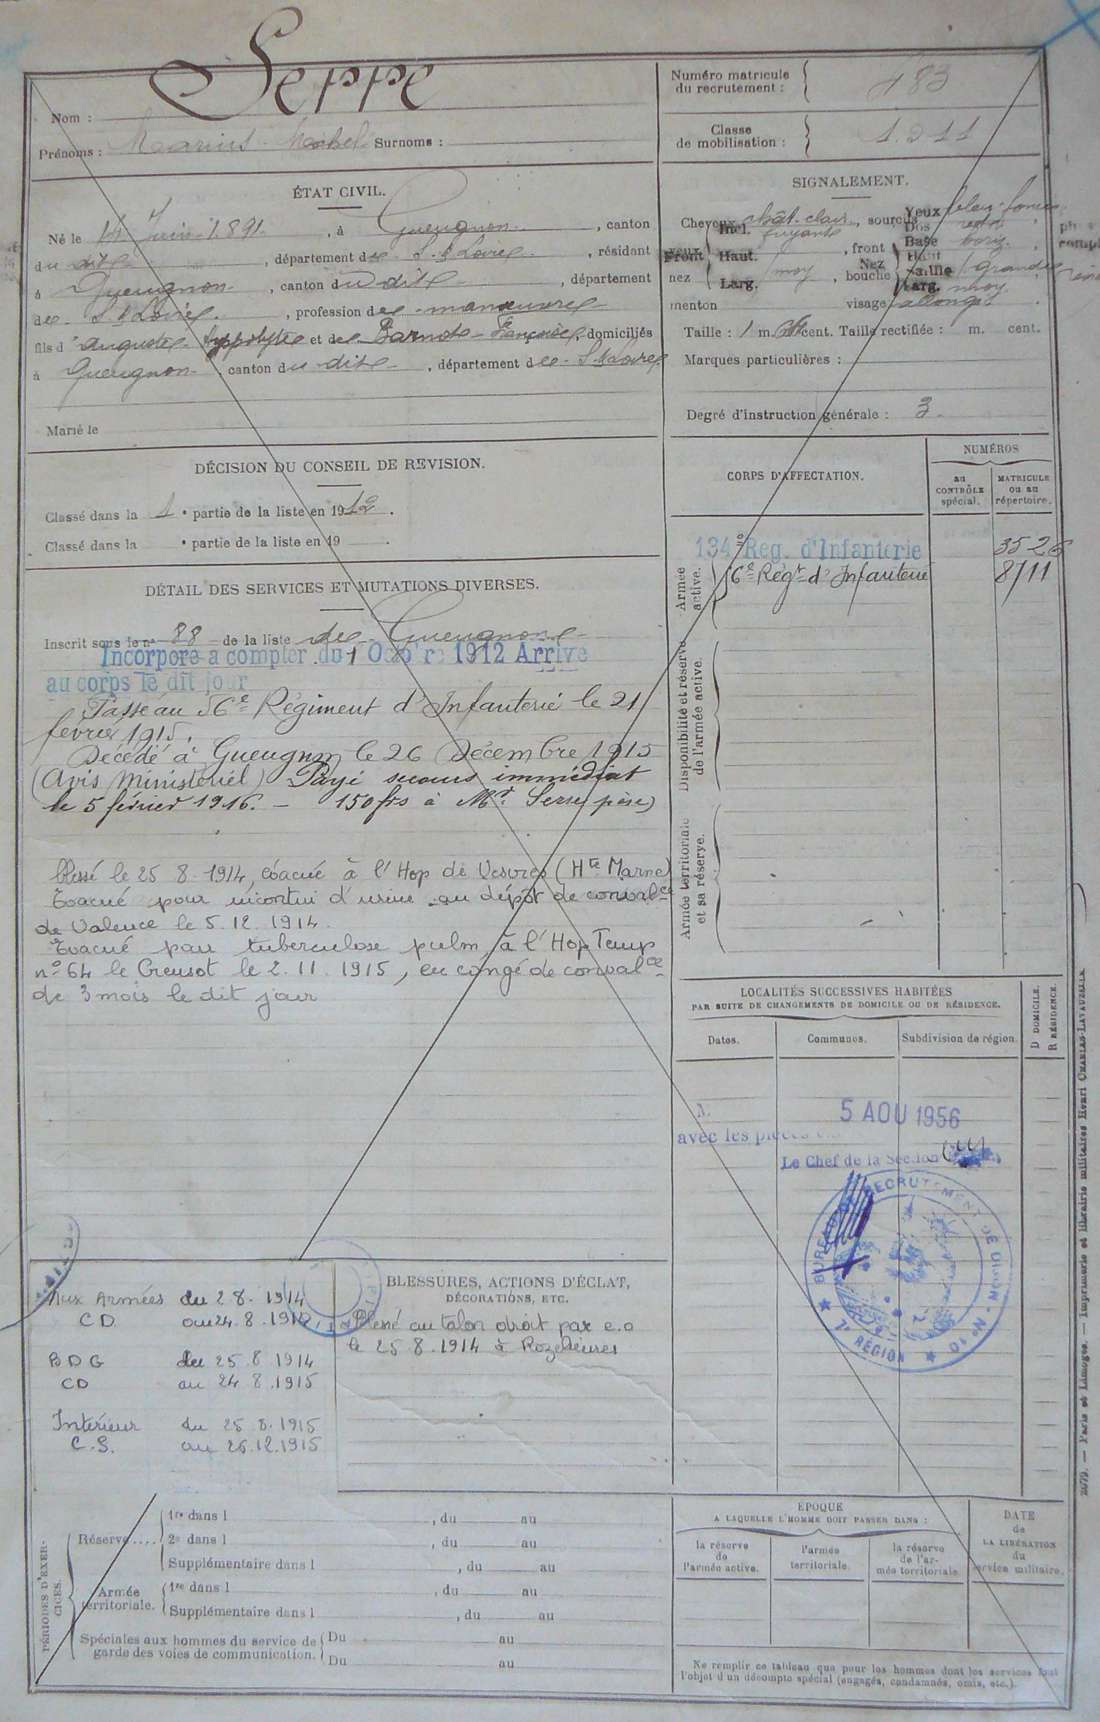 Nom : Serre
Prénoms : Marius Michel Surnoms :
Numéro matricule
du recrutement : 483
Classe
de mobilisation : 1911
ÉTAT CIVIL.
Né le 14 Juin 1891, à Gueugnon, canton
du dit, département de S. & Loire, résidant
à Gueugnon, canton du dit, département
de S. & Loire, profession de manœuvre
fils d'Auguste Hyppolyte et de Barnot Françoise, domiciliés
à Gueugnon, canton du dit, département de S. & Loire
Marié le
SIGNALEMENT.
Cheveux chât. clair, sourcils
Yeux bleu foncé
yeux Front Incl. fuyante, front
Haut.
nez Larg. moy, bouche
Nez Dos rect.
Base horiz.
Haut
Saillie grande
Larg. moy
menton visage allongé
Taille : 1 m. cent. Taille rectifiée : m. cent.
Marques particulières :
Degré d'instruction générale : 3.
DÉCISION DU CONSEIL DE REVISION.
Classé dans la 1e partie de la liste en 1912.
Classé dans la e partie de la liste en 19 .
DÉTAIL DES SERVICES ET MUTATIONS DIVERSES.
Inscrit sous le no 88 de la liste de Gueugnon
Incorporé à compter du 1 Octobre 1912 Arrivé
au corps le dit jour
Passé au 56e Régiment d'Infanterie le 21
février 1915.
Décédé à Gueugnon le 26 Décembre 1915
(Avis Ministériel) Payé secours immédiat
le 5 février 1916. — 150 frs à Mr. Serre père)
blessé le 25 8 1914, évacué à l'Hop de Vesvres (Hte Marne)
Evacué pour incontin d'urine au dépôt de convalce
de Valence le 5.12.1914.
Evacué pour tuberculose pulm, à l'Hop Temp
no 64 le Creusot le 2.11.1915, en congé de convalce
de 3 mois le dit jour
CORPS D'AFFECTATION.
NUMÉROS
au CONTRÔLE spécial.
MATRICULE ou au répertoire.
Armée active.
134e Reg. d'Infanterie 3526
56e Régt d'Infanterie 8711
Disponibilité et réserve de l'armée active.
Armée territoriale et sa réserve.
LOCALITÉS SUCCESSIVES HABITÉES
PAR SUITE DE CHANGEMENTS DE DOMICILE OU DE RÉSIDENCE.
Dates. Communes. Subdivision de région.
D DOMICILE.
R RÉSIDENCE.
5 AOU 1956
avec les pièces
Le Chef de la Section
BUREAU DE RECRUTEMENT DE DIJON - No 10
7e RÉGION
Aux Armées du 2 8. 1914
CD au 24.8.1914
BDG du 25.8.1914
CD au 24 8.1915
Intérieur du 25.8.1915
C.S. au 26.12.1915
BLESSURES, ACTIONS D'ÉCLAT,
DÉCORATIONS, ETC.
Blessé au talon droit par e.o
le 25 8 1914 à Rozelieures
PÉRIODES D'EXERCICES.
Réserve....
1re dans l , du au
2e dans l , du au
Supplémentaire dans l , du au
Armée territoriale.
1re dans l , du au
Supplémentaire dans l , du au
Spéciales aux hommes du service de
garde des voies de communication.
Du au
Du au
EPOQUE
A LAQUELLE L'HOMME DOIT PASSER DANS :
la réserve de l'armée active.
l'armée territoriale.
la réserve de l'armée territoriale
DATE de LA LIBÉRATION du service militaire.
Ne remplir ce tableau que pour les hommes dont les services font
l'objet d'un décompte spécial (engagés, condamnés, omis, etc.).
2079. — Paris et Limoges. — Imprimerie et librairie militaires Henri CHARLES-LAVAUZELLE